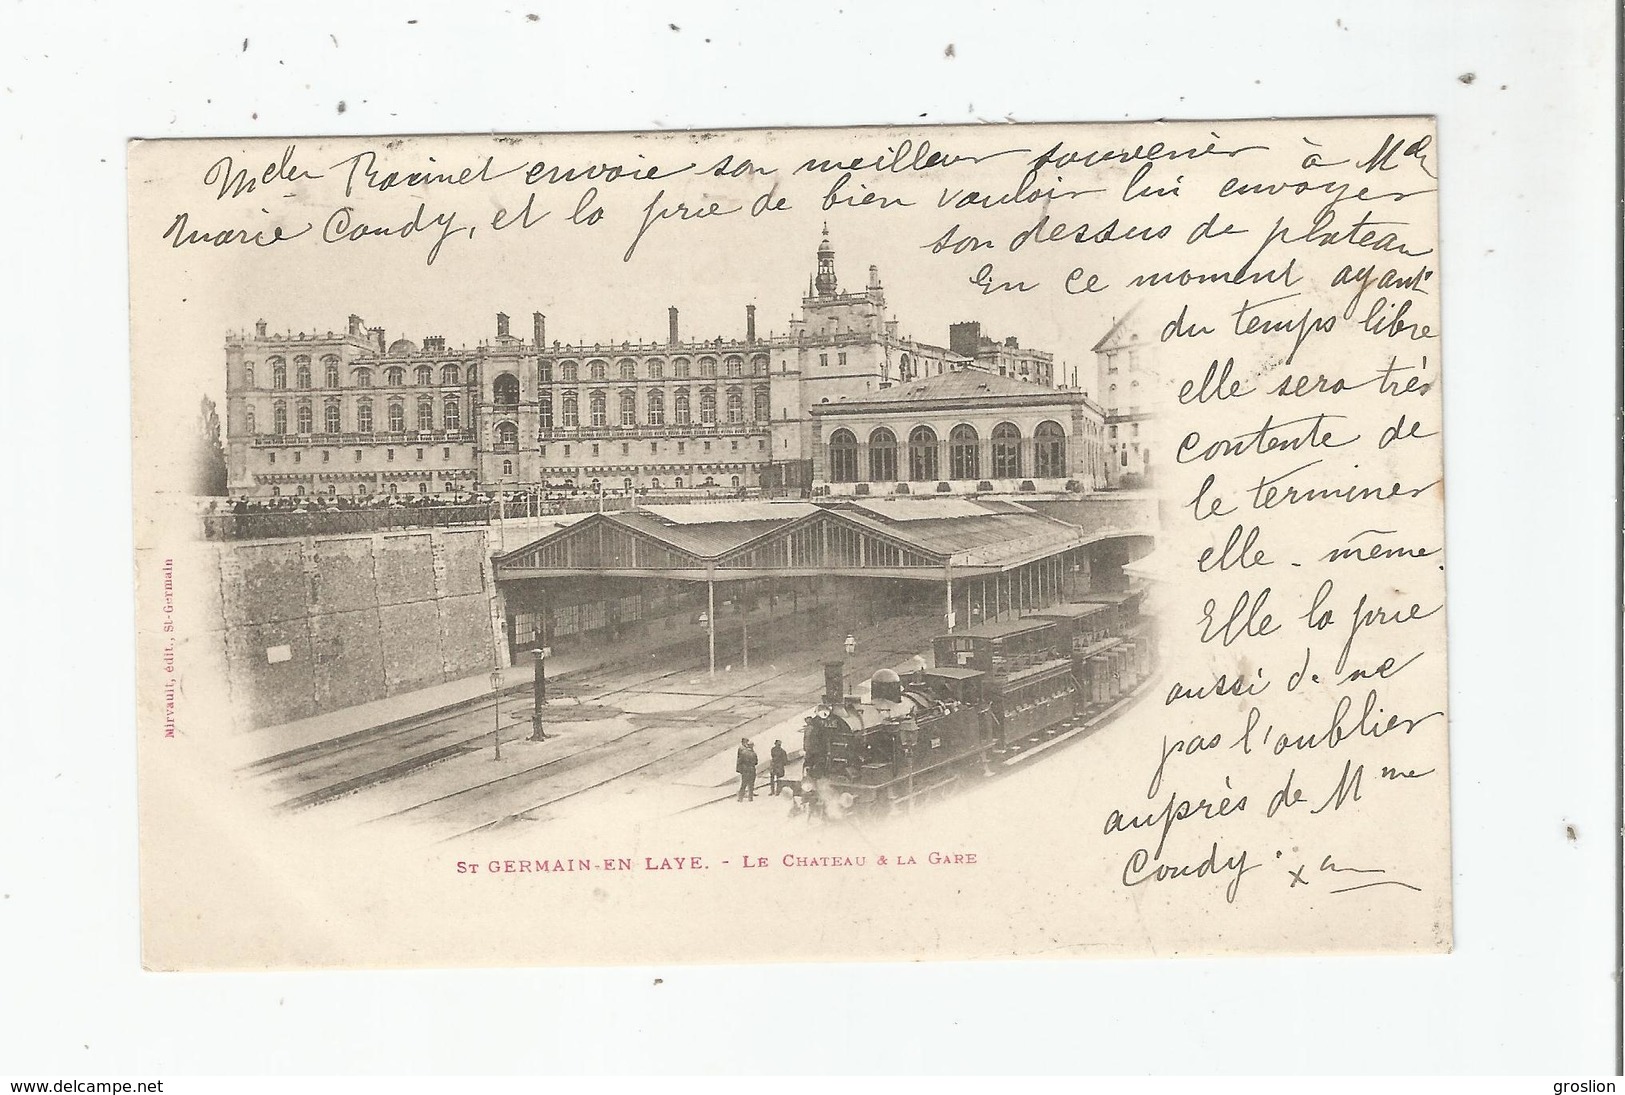 Mdlle envoie son meilleur souvenir à Mdlle
Marie Coudy, et la prie de bien vouloir lui envoyer
son dessus de plateau
En ce moment ayant
du temps libre
elle sera très
contente de
le terminer
elle-même.
Elle la prie
aussi de ne
pas l'oublier
auprès de Mme
Coudy.
Mirvault, édit., St-Germain
ST GERMAIN-EN LAYE. - LE CHATEAU & LA GARE
www.delcampe.net
groslion